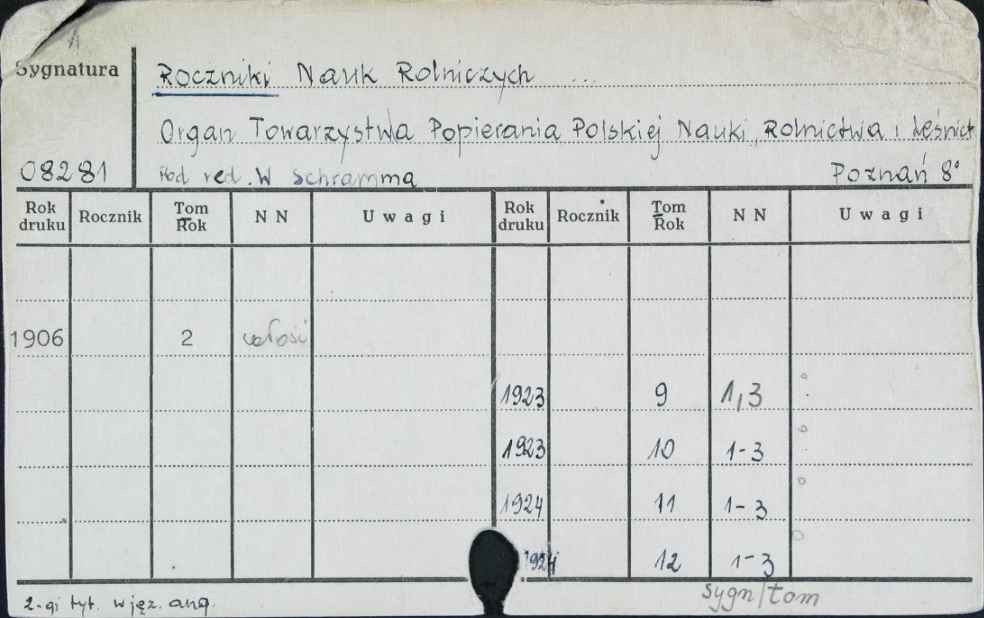 Sygnatura
Roczniki Nauk Rolniczych ...
Organ Towarzystwa Popierania Polskiej Nauki, Rolnictwa i Leśnict
08281
Pod red. W Schramma
Poznań 8°
Rok druku Rocznik Tom Rok NN Uwagi Rok druku Rocznik Tom Rok NN Uwagi
1906 2 całość
1923 9 1,3
1923 10 1-3
1924 11 1-3
1924 12 1-3
2-gi tyt. w jęz. ang.
sygn/tom